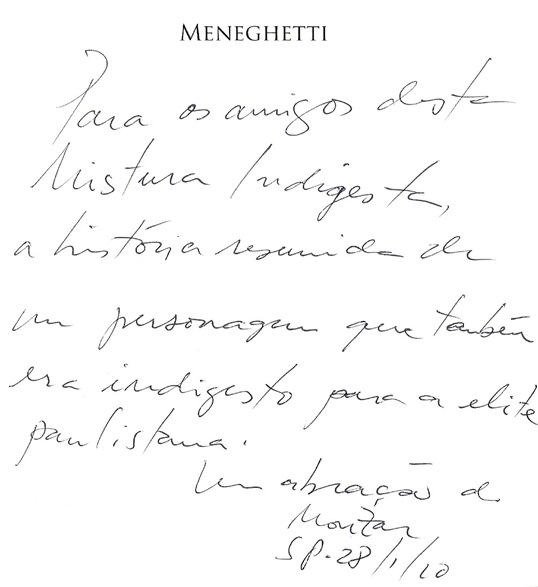 MENEGHETTI
Para os amigos desta
Mistura Indigesta,
a história resumida de
um personagem que também
era indigesto para a elite
paulistana.
Um abração do
Mouzar
SP. 28/1/10